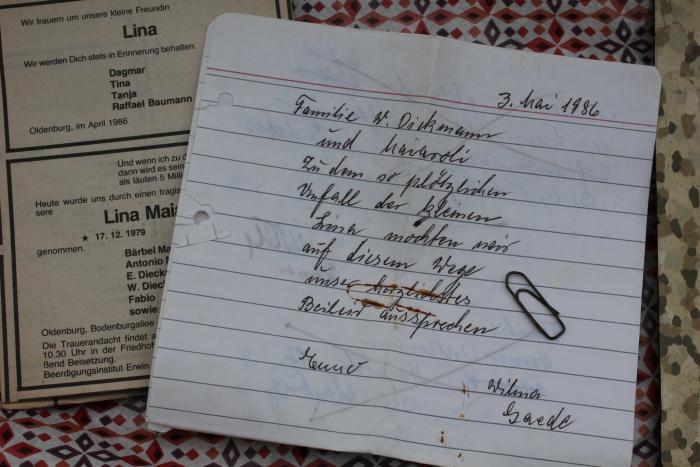 Wir trauern um unsere kleine Freundin
Lina
Wir werden Dich stets in Erinnerung behalten.
Dagmar
Tina
Tanja
Raffael Baumann
Oldenburg, im April 1986
Und wenn ich zu d
dann wird es sein
als läuten 5 Milli
Heute wurde uns durch einen tragis
sere
Lina Maia
★ 17. 12. 1979
genommen.
Bärbel Ma
Antonio M
E. Dieck
W. Dieck
Fabio
sowie
Oldenburg, Bodenburgallee
Die Trauerandacht findet a
10.30 Uhr in der Friedhof
ßend Beisetzung.
Beerdigungsinstitut Erwin
3. Mai 1986
Familie W. Dickmann
und Maiaroli
Zu dem so plötzlichen
Unfall der kleinen
Lina möchten wir
auf diesem Wege
unser herzlichstes
Beileid aussprechen
Wilma
Gaede